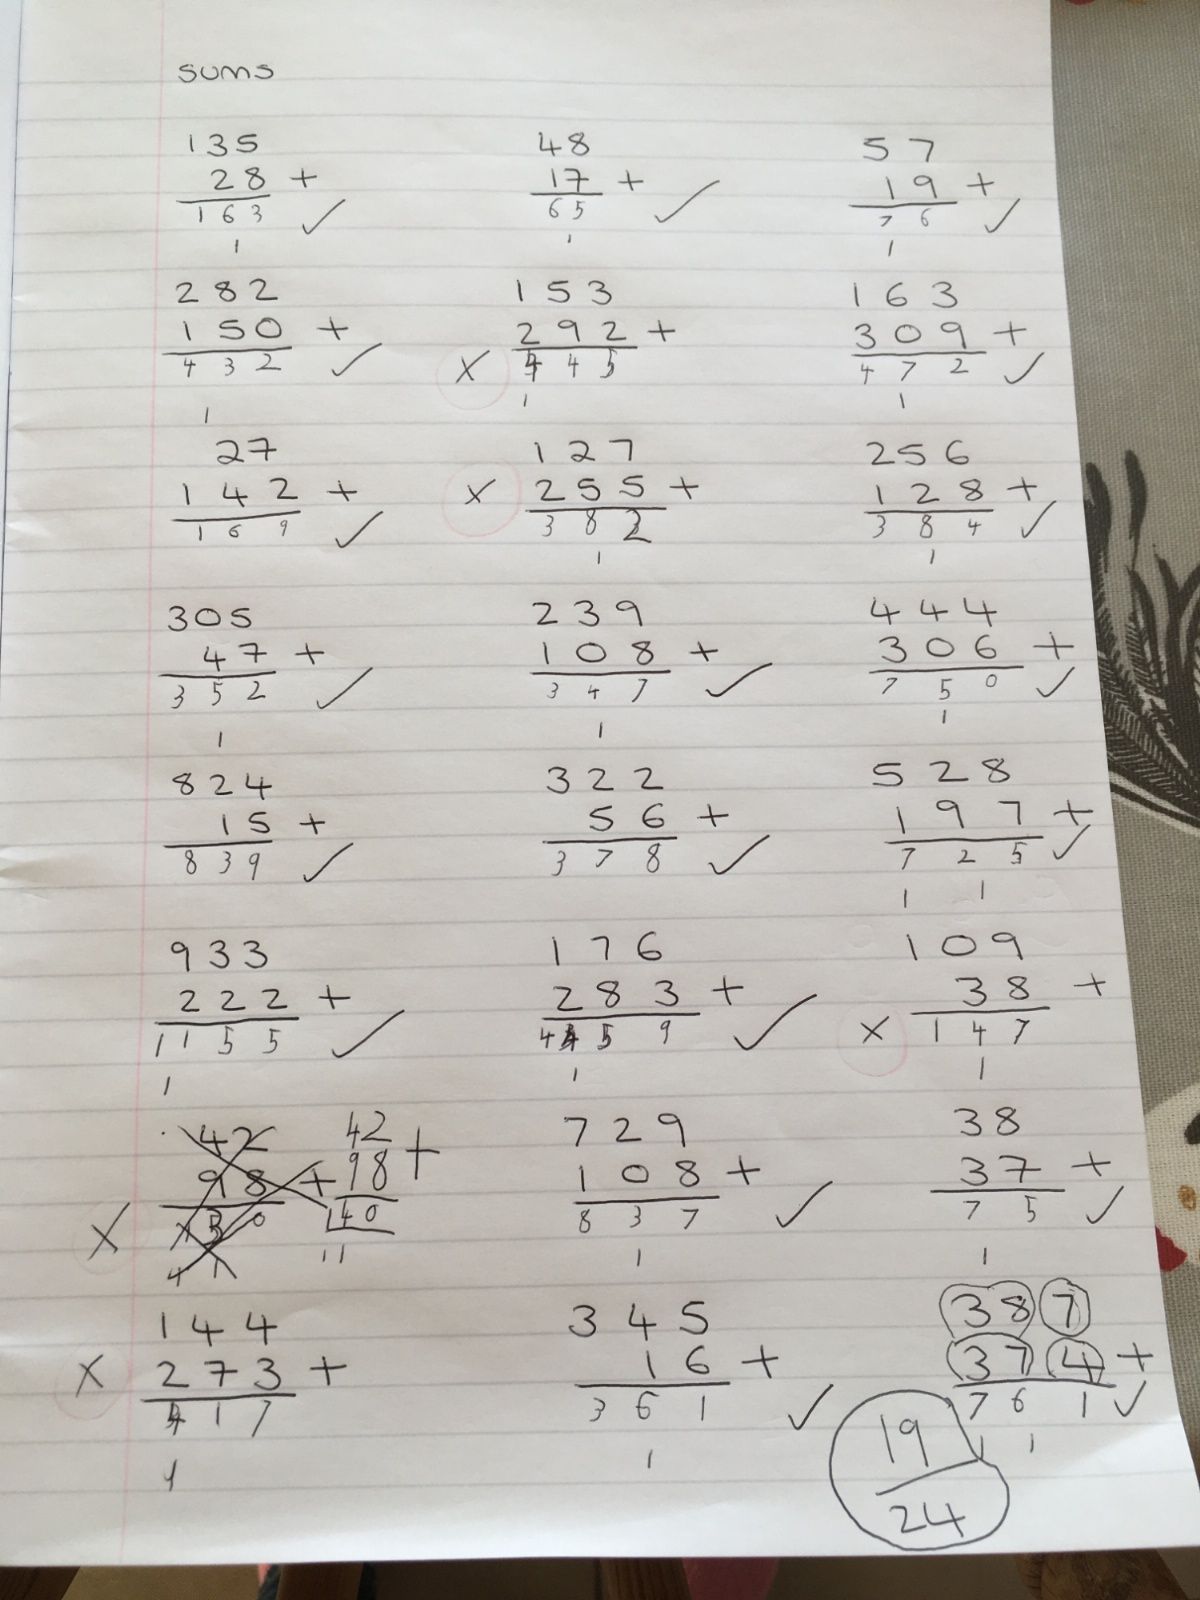 sums
135 48 57
28 + 17 + 19 +
163 ✓ 65 ✓ 76 ✓
1 1 1
282 153 163
150 + 292 + 309 +
432 ✓ x 445 472 ✓
1 1 1
27 127 256
142 + x 255 + 128 +
169 ✓ 382 384 ✓
1 1
305 239 444
47 + 108 + 306 +
352 ✓ 347 ✓ 750 ✓
1 1 1
824 322 528
15 + 56 + 197 +
839 ✓ 378 ✓ 725 ✓
1 1
933 176 109
222 + 283 + 38 +
1155 ✓ 459 ✓ x 147
1 1 1
42 42 729 38
98 + 98 + 108 + 37 +
x 140 837 ✓ 75 ✓
11 1 1
144 345 387
x 273 + 16 + 374 +
417 361 ✓ 761 ✓
1 1 1 1
19
24